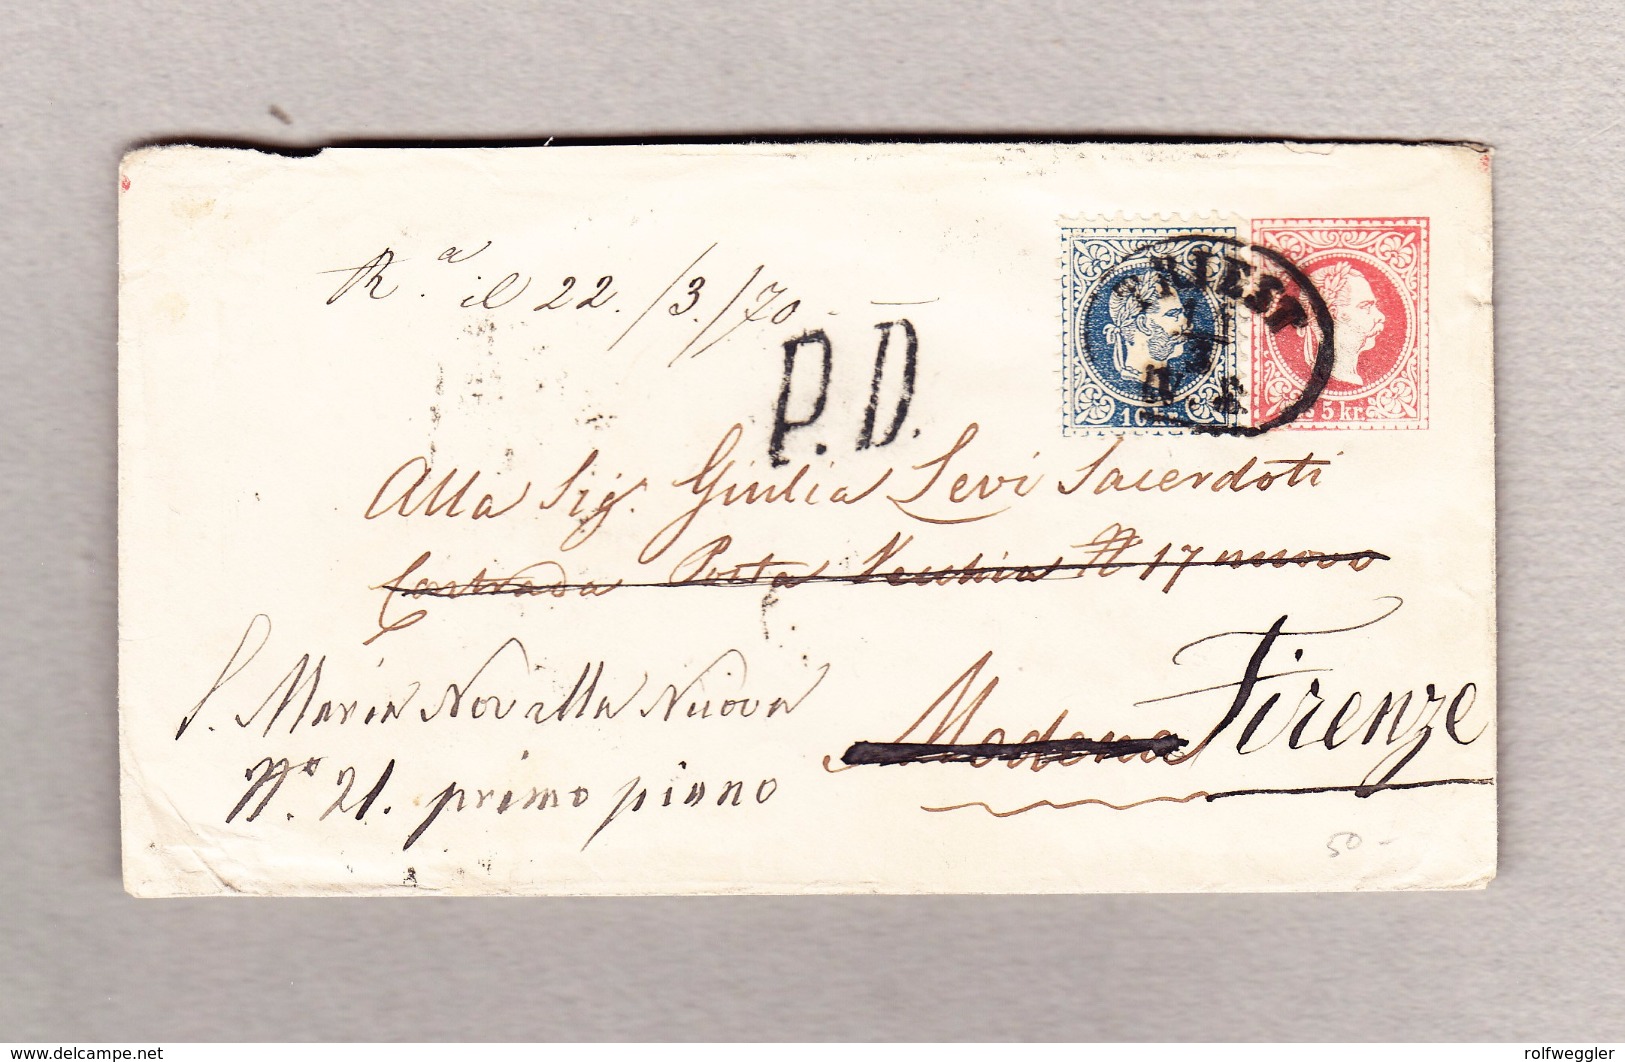 R.a il 22./3./70.
P.D.
TRIEST
10 kr.
5 kr.
Alla Sig. Giulia Levi Sacerdoti
Contrada Posta Vecchia N 17 nuovo
S. Maria Novella Nuova
Modena Firenze
No. 21. primo piano
50 -
www.delcampe.net
rolfweggler